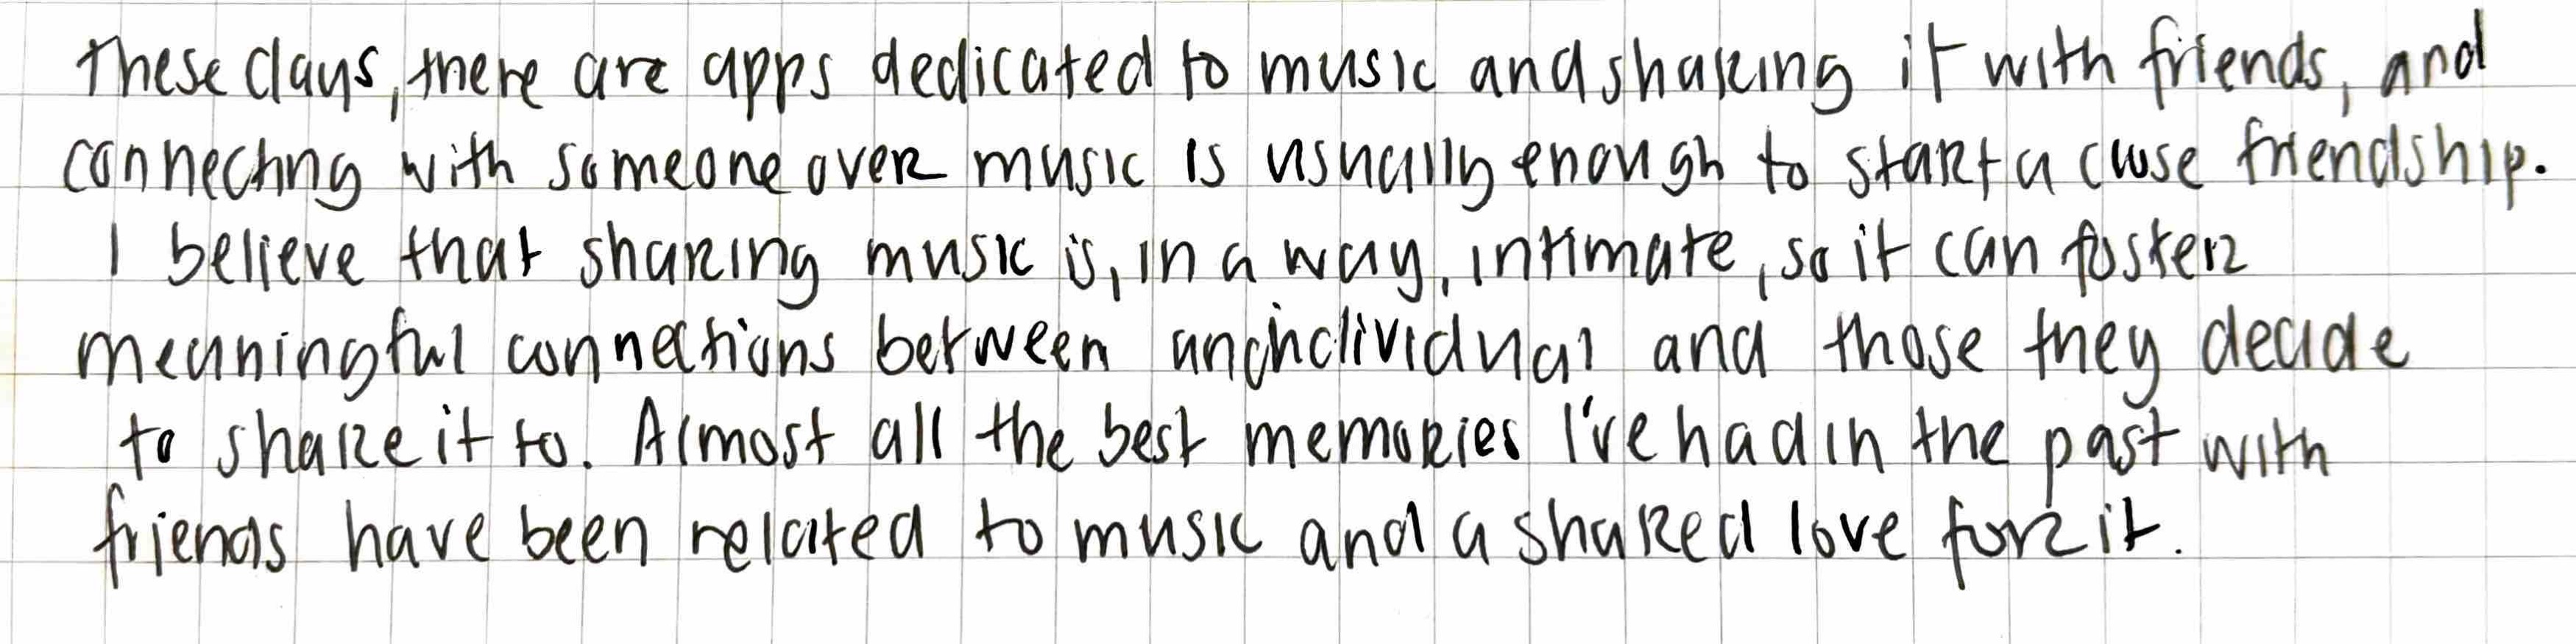 these days, there are apps dedicated to music and sharing it with friends, and
connecting with someone over music is usually enough to start a close friendship.
I believe that sharing music is, in a way, intimate, so it can foster
meaningful connections between an individual and those they decide
to share it to. Almost all the best memories I've had in the past with
friends have been related to music and a shared love for it.